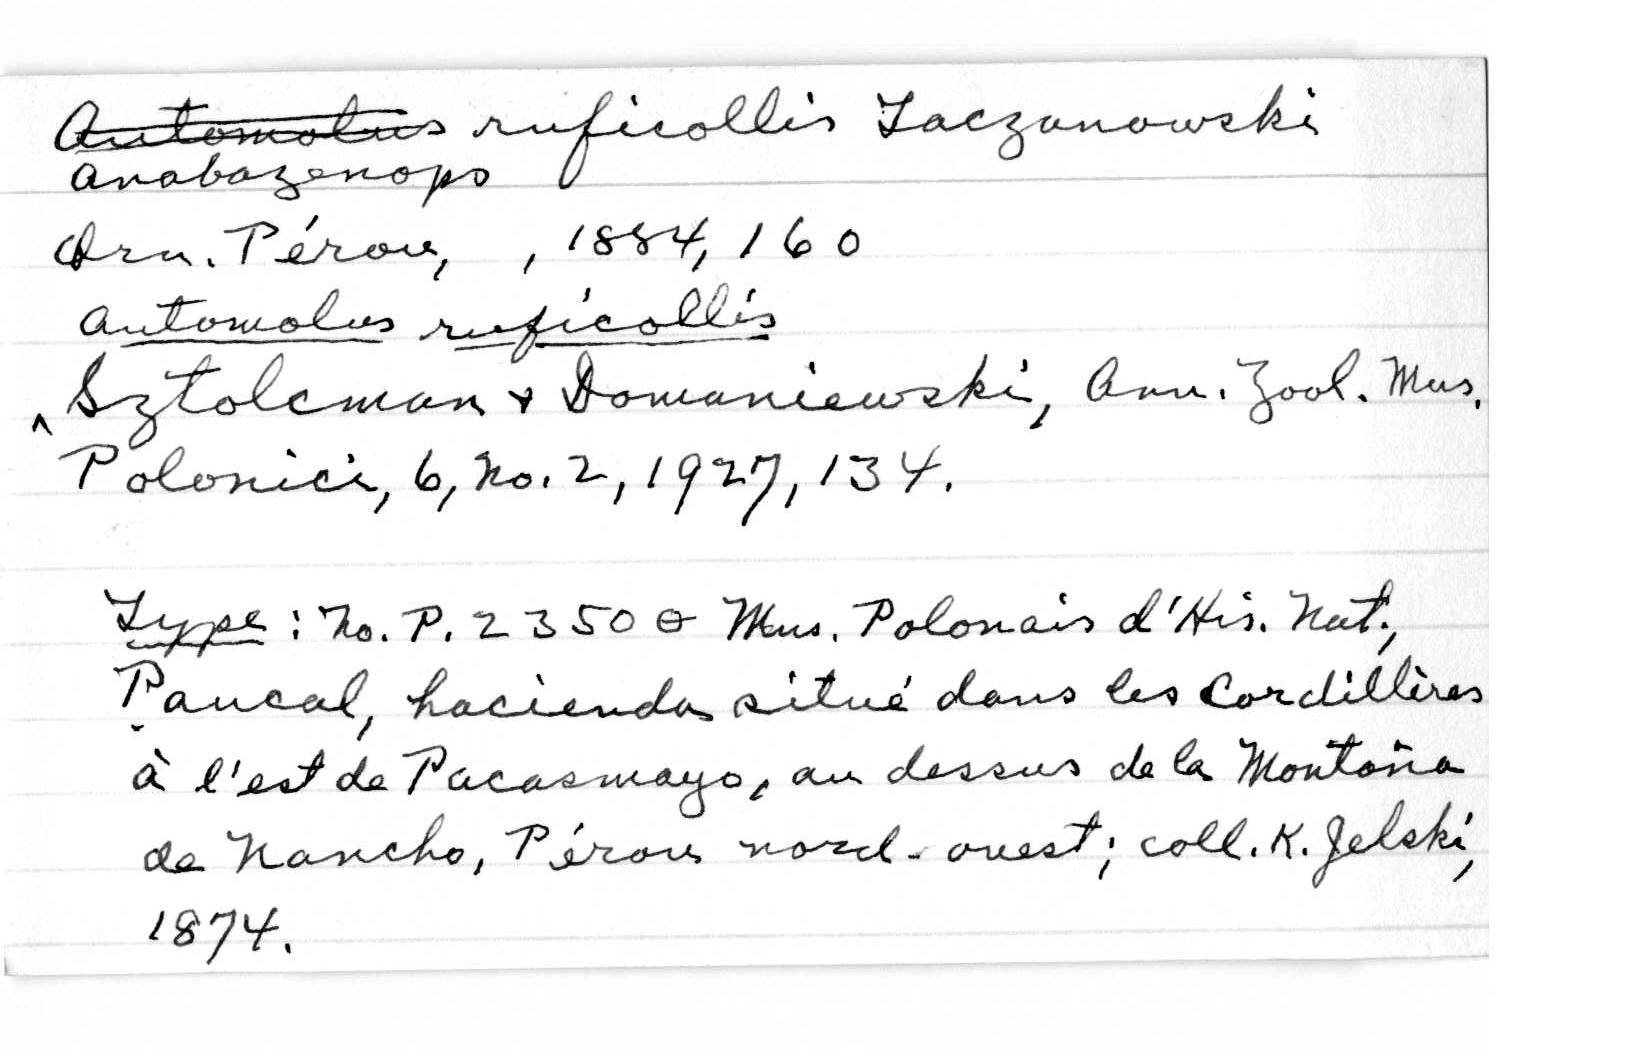 Automolus ruficollis Taczanowski
Anabazenops
Orn. Pérou, , 1884, 160
Automolus ruficollis
^ Sztolcman & Domaniewski, Ann. Zool. Mus.
Polonici, 6, No. 2, 1927, 134.
Type: No. P. 2350 ♂ Mus. Polonais d'His. Nat.,
Paucal, hacienda situé dans les Cordillères
à l'est de Pacasmayo, au dessus de la Montaña
de Nancho, Pérou nord-ouest; coll. K. Jelski,
1874.